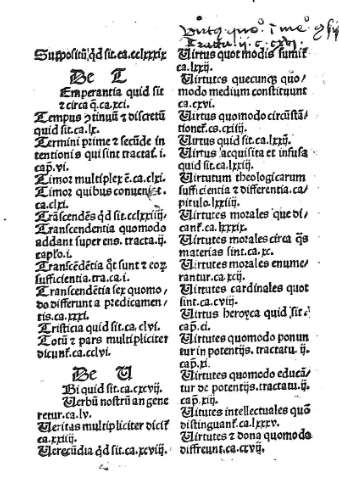 Suppositũ qd sit.ca.cclxxxix
De T
Temperantia quid sit
& circa q̃.ca.xci.
Tempus ꝯtinuũ & discretũ
quid sit.ca.lx.
Termini prime & secũde in
tentionis qui sint tractat.i.
cap.vi.
Timor multiplex ẽ.ca.clxi.
Timor quibus conuenit.
ca.clxi.
Trãscendẽs qd sit.cclxxiiij.
Transcendentia quomodo
addant super ens.tracta.ij
caplo.i.
Transcẽdẽtia qt sunt & eoꝝ
sufficientia.tra.ca.i.
Transcẽdẽtia sex quomo
do differunt a predicamen
tis.ca.xxxi.
Tristicia quid sit.ca.clvi.
Totũ & pars multipliciter
dicunt.ca.cclvi.
De U
Ubi quid sit.ca.cxcvij.
Uerbũ nostrũ an gene
retur.ca.lv.
Ueritas multipliciter dicit
ca.xxiiij.
Uerecũdia qd sit.ca.xcviij.
Uirtus quot modis sumit
ca.lxxij.
Uirtutes quecunqꝫ quo
modo medium constituunt
ca.cxvi.
Uirtus quomodo circũstã
tionet.cs.cxiij.
Uirtus quid sit.ca.lxxij.
Uirtus acquisita et infusa
quid sit.ca.lxxiij.
Uirtutum theologicarum
sufficientia & differentia.ca
pitulo.lxxiiij.
Uirtutes morales que di
cant.ca.lxxxix.
Uirtutes morales circa q̃s
materias sint.ca.xc.
Uirtutes morales enume
rantur.ca.xcij.
Uirtutes cardinales quot
sint.ca.cvij.
Uirtus heroyca quid sit
cap.ci.
Uirtutes quomodo ponun
tur in potentijs.tractatu.ij.
cap.xi.
Uirtutes quomodo educũ
tur de potentijs.tractatu.ij
cap.xij.
Uitutes intellectuales quõ
distinguant.ca.lxxxv.
Uirtutes & dona quomodo
differunt.ca.cxvij.